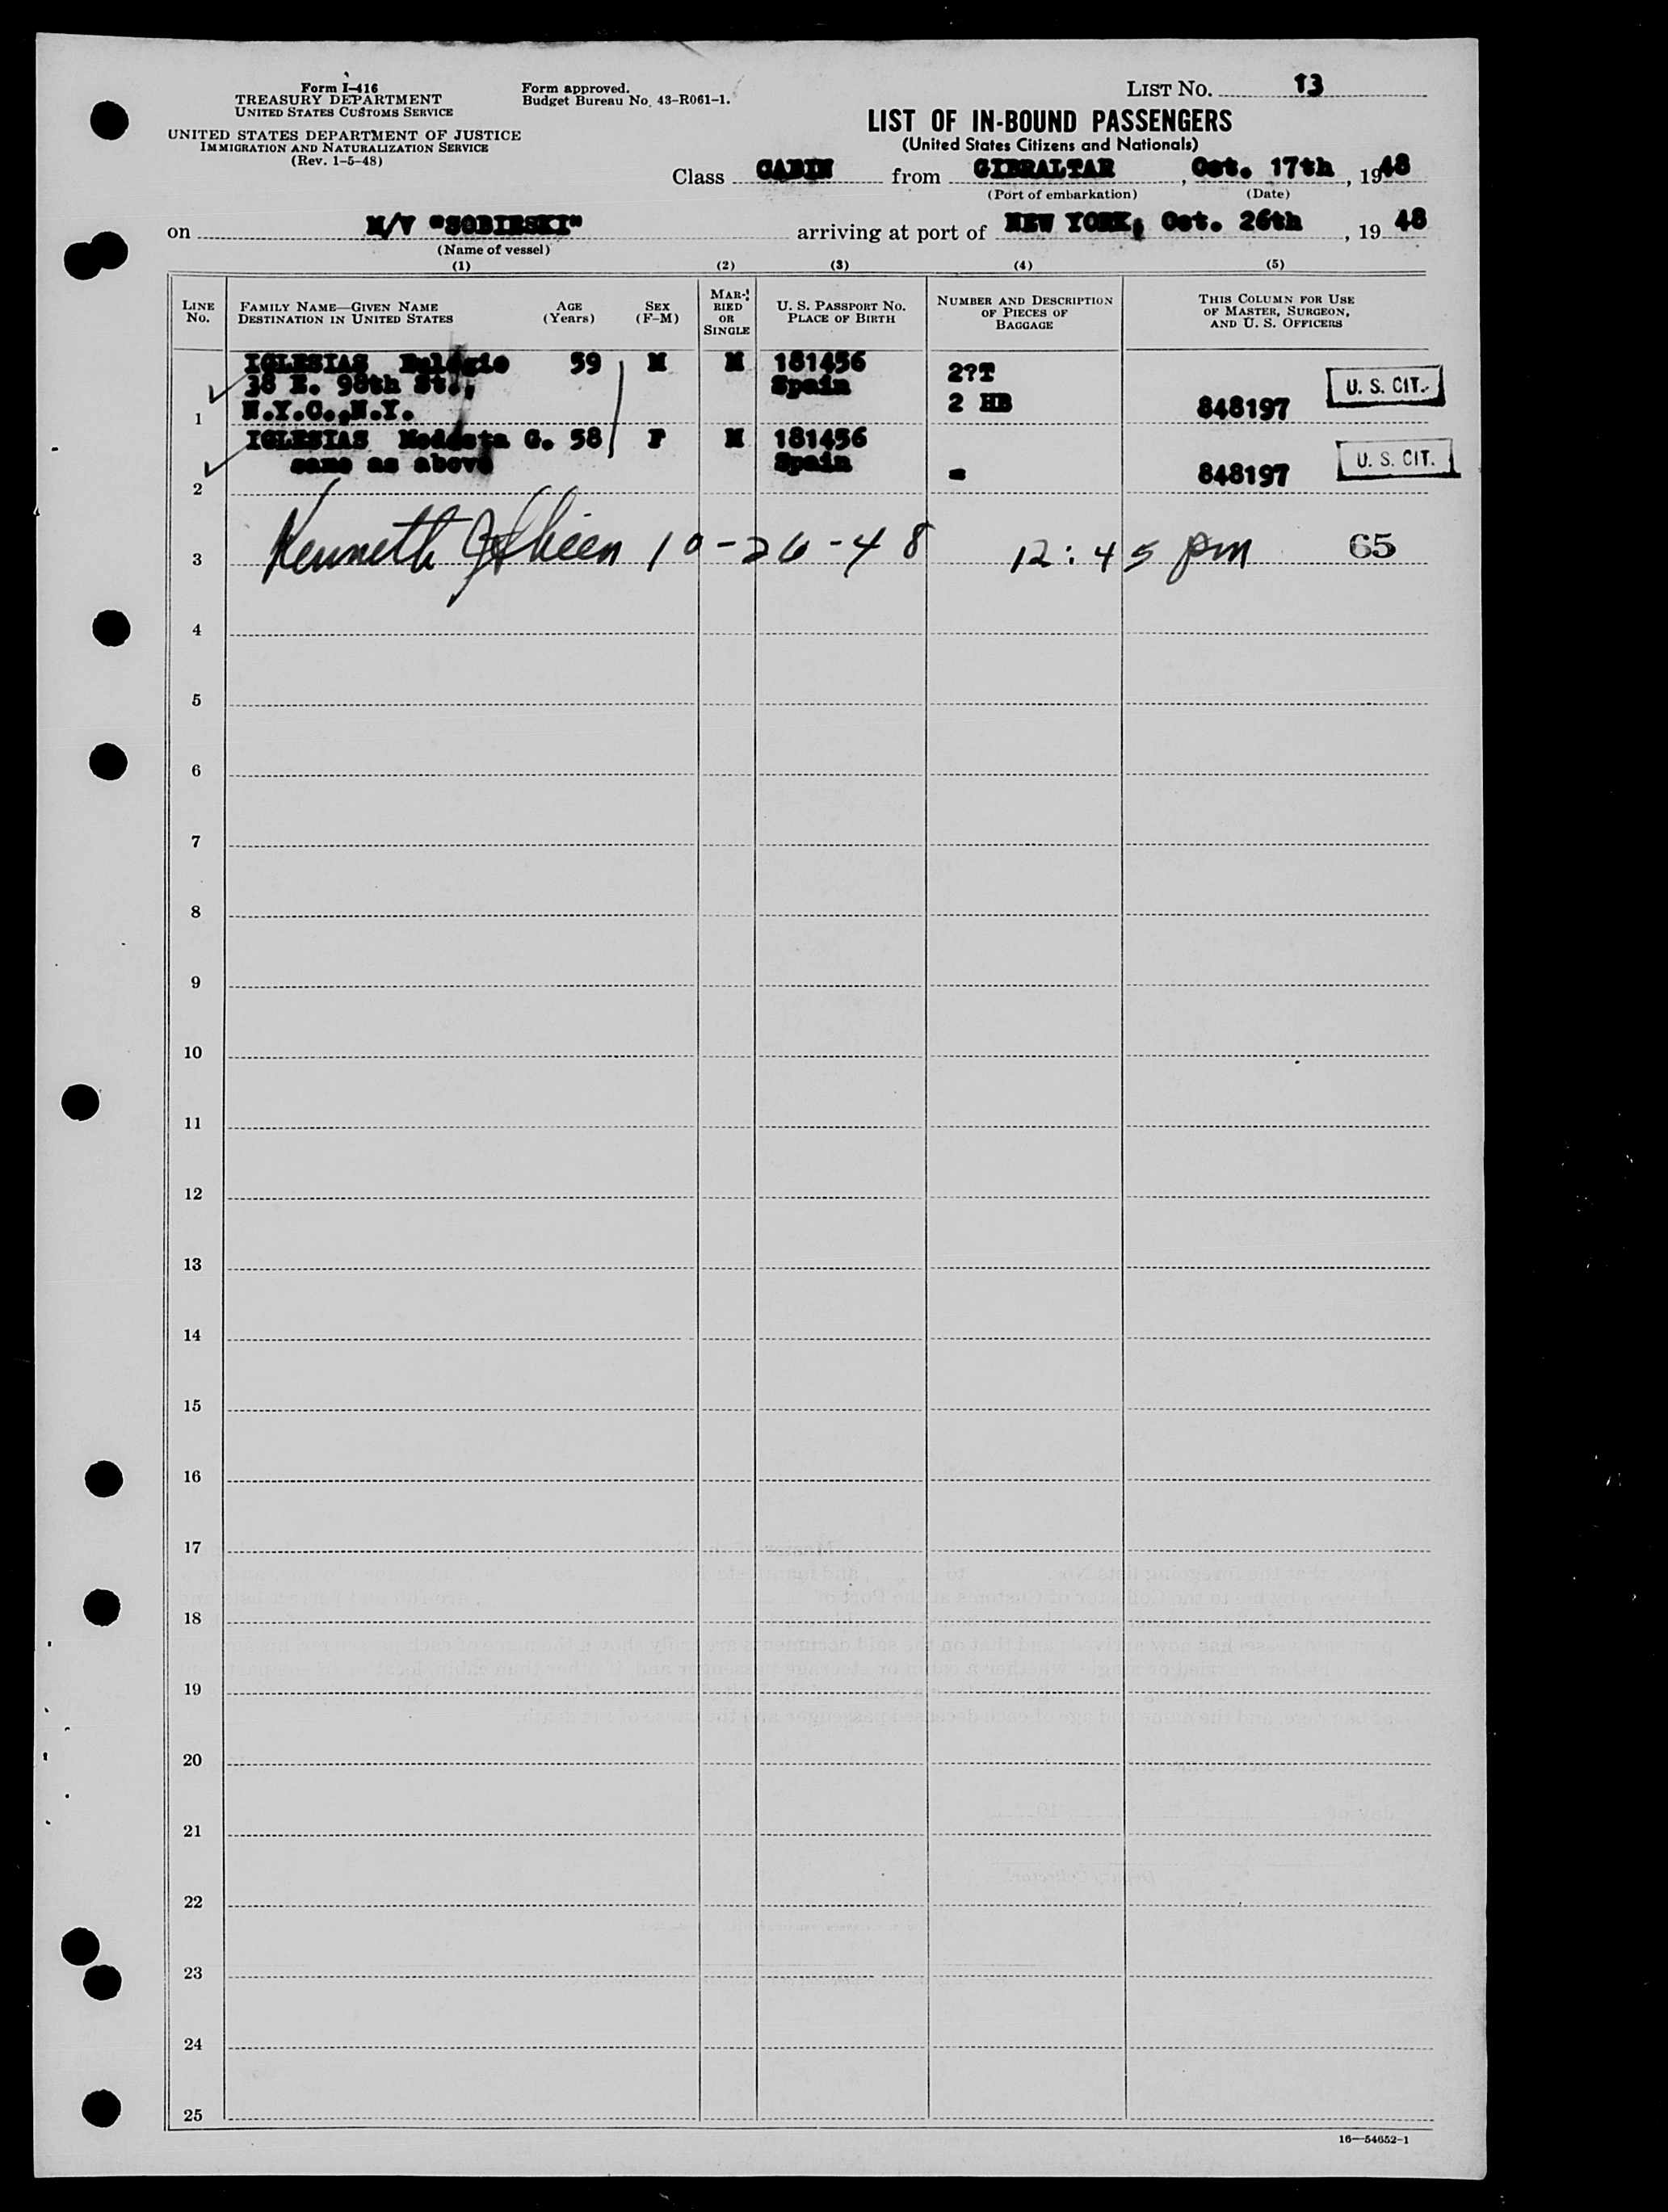 Form I-416
TREASURY DEPARTMENT
UNITED STATES CUSTOMS SERVICE
UNITED STATES DEPARTMENT OF JUSTICE
IMMIGRATION AND NATURALIZATION SERVICE
(Rev. 1-5-48)
Form approved.
Budget Bureau No. 43-R061-1.
LIST NO. 13
LIST OF IN-BOUND PASSENGERS
(United States Citizens and Nationals)
Class CABIN from GIBRALTAR, Oct. 17th, 1948
(Port of embarkation) (Date)
on M/V "SOBIESKI" arriving at port of NEW YORK, Oct. 26th, 1948
(Name of vessel)
(1) (2) (3) (4) (5)
LINE No.
FAMILY NAME—GIVEN NAME
DESTINATION IN UNITED STATES
AGE
(Years)
SEX
(F-M)
MARRIED OR SINGLE
U. S. PASSPORT NO.
PLACE OF BIRTH
NUMBER AND DESCRIPTION
OF PIECES OF
BAGGAGE
THIS COLUMN FOR USE
OF MASTER, SURGEON,
AND U. S. OFFICERS
IGLESIAS 59 M M 181456 2?T
38 E. 98th St., Spain U. S. CIT.
1 N.Y.C.,N.Y. 2 HB 848197
IGLESIAS Modesta G. 58 F M 181456
same as above Spain U. S. CIT.
2 - 848197
3 Kenneth 10-26-48 12:45 pm 65
4
5
6
7
8
9
10
11
12
13
14
15
16
17
18
19
20
21
22
23
24
25
16—54652-1